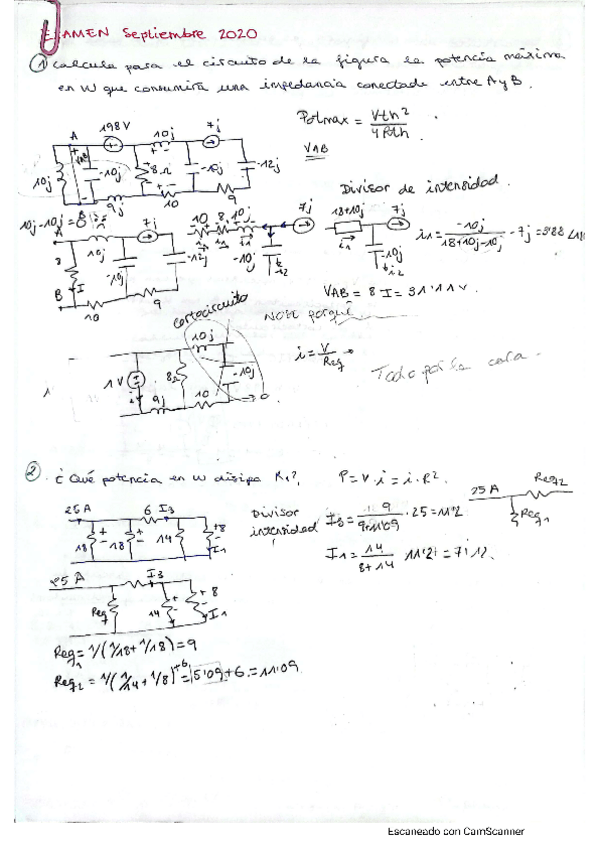 EXAMEN Septiembre 2020
① Calcula para el circuito de la figura la potencia máxima
en W que consumirá una impedancia conectada entre A y B.
Potmax = Vth² / 4Rth
VAB
A 198V 10j 7j
10j -10j 8Ω -10j -12j
9j 10 9
Divisor de intensidad.
10j-10j=0
A 10j 7j 10 8 10j 7j 18+10j 7j
8 I -10j -12j -10j i2 i1 -10j i2
B 10 9
i1 = -10j / 18+10j-10j · 7j = 3'88
VAB = 8 I = 31'11 V
cortocircuito
Non porqué
10j
1V i 8Ω -10j
9j 10
i = V / Req
Todo por la cara
② ¿Qué potencia en W disipa R1?
P = V·i = i·R²
25 A Req2
Req1
25 A 6 I3
18 18 14 8 I1
Divisor intensidad
I3 = 9 / 9+11'09 · 25 = 11'2
I1 = 14 / 8+14 11'2 = 7'12
25 A I3
Req 14 8 I1
Req1 = 1/(1/18+1/18) = 9
Req2 = 1/(1/14+1/8)+6 = 5'09+6 = 11'09
Escaneado con CamScanner